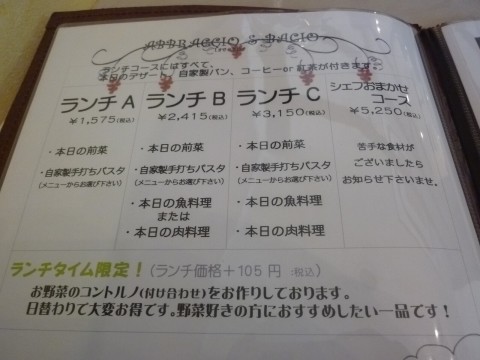 ABBRACCIO & BACIO
ランチコースにはすべて、
本日のデザート、自家製パン、コーヒーor紅茶が付きます。
ランチA
¥1,575(税込)
・本日の前菜
・自家製手打ちパスタ
(メニューからお選び下さい)
ランチB
¥2,415(税込)
・本日の前菜
・自家製手打ちパスタ
(メニューからお選び下さい)
・本日の魚料理
または
・本日の肉料理
ランチC
¥3,150(税込)
・本日の前菜
・自家製手打ちパスタ
(メニューからお選び下さい)
・本日の魚料理
・本日の肉料理
シェフおまかせ
コース
¥5,250(税込)
苦手な食材が
ございましたら
お知らせ下さいませ。
ランチタイム限定!(ランチ価格+105円 :税込)
お野菜のコントルノ(付け合わせ)をお作りしております。
日替わりで大変お得です。野菜好きの方におすすめしたい一品です!